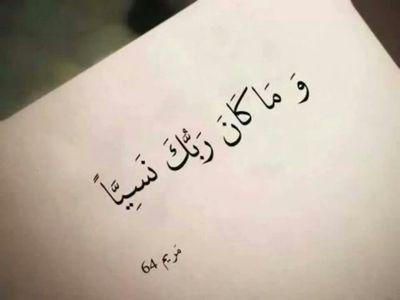 وَ مَا كَانَ رَبُّكَ نَسِيًّا
مَريم 64